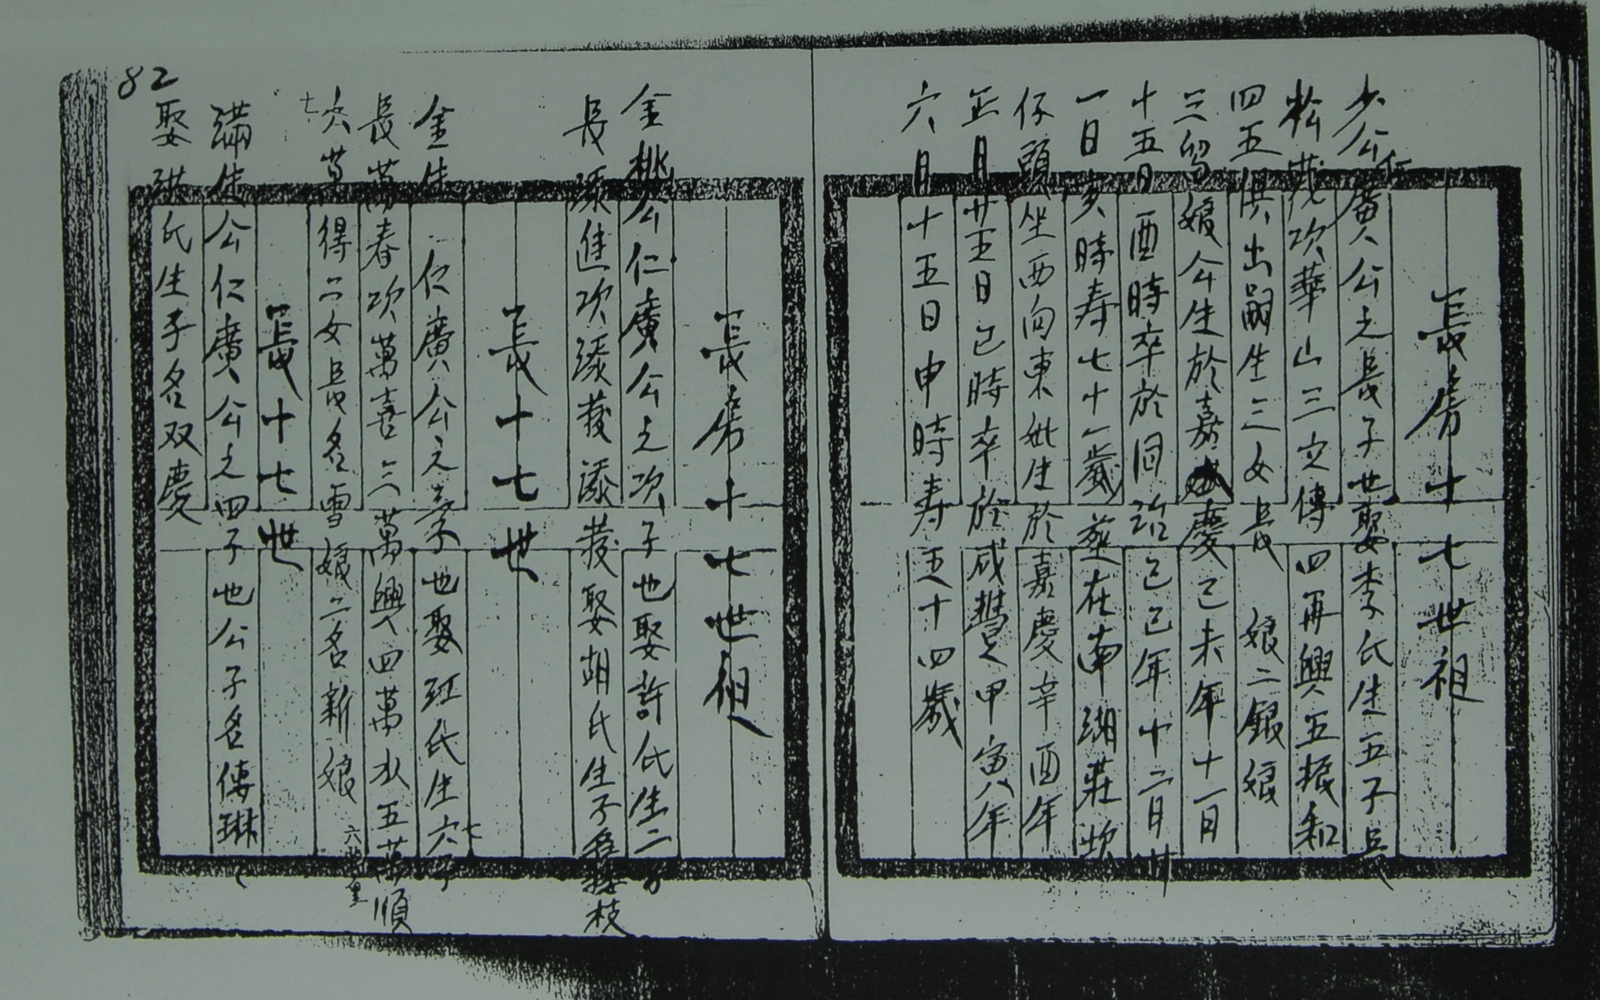 長房十七世祖
少公仁廣公之長子也娶李氏生五子長
松茂次華山三文傳四再興五振和
四五俱出嗣生三女長 娘二銀娘
三 娘公生於嘉慶己未年十一月
十五日酉時卒於同治己巳年十二月廿
一日亥時寿七十一歲葬在南湖莊坎
仔頭坐西向東妣生於嘉慶辛酉年
正月廿五日巳時卒於咸豐甲寅八年
六月十五日申時寿五十四歲
長房十七世祖
金桃公仁廣公之次子也娶許氏生二子
長添進次添 娶胡氏生子名 枝
長十七世
金生 仁廣公之 子也娶江氏生六子
七
長萬春次萬喜三萬興四萬水五萬順
六萬
七
六萬得二女長名雪娘二名新娘
長十七世
滿生公仁廣公之四子也公子名傳琳
娶洪氏生子名双慶
82